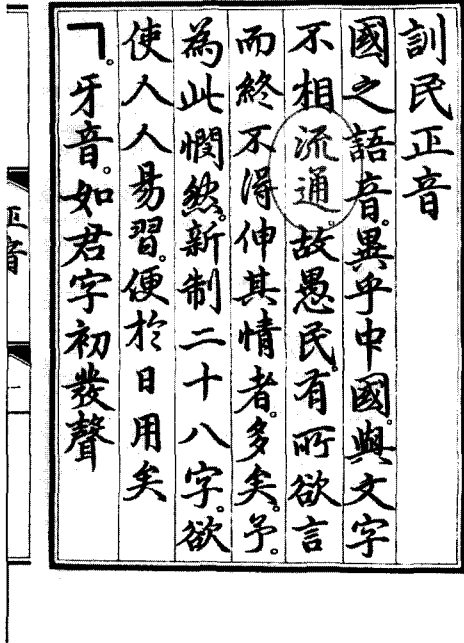 訓民正音
國之語音。異乎中國。與文字
不相流通。故愚民。有所欲言
而終不得伸其情者。多矣。予。
為此憫然。新制二十八字。欲
使人人易習。便於日用矣
ㄱ。牙音。如君字初發聲
正音
一